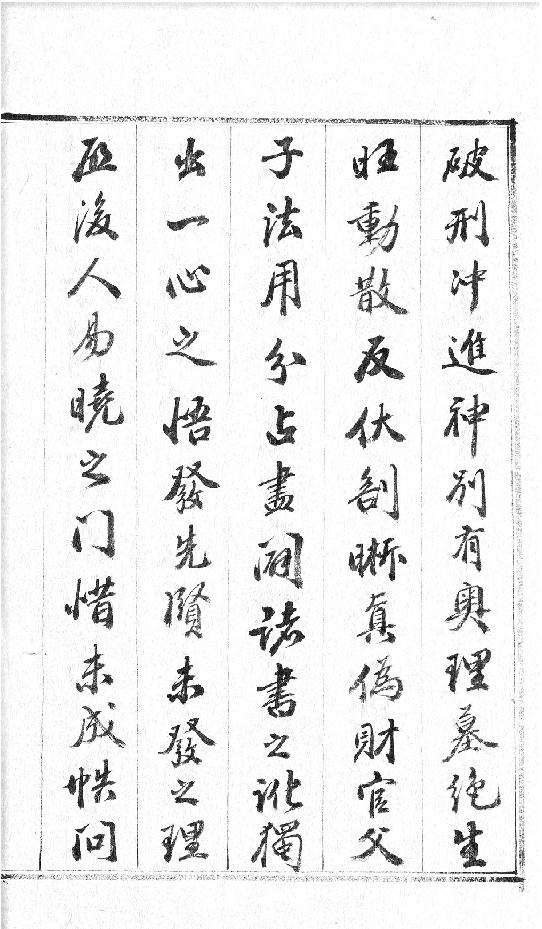 破刑冲進神别有奥理墓绝生
旺動散反伏剖晰真偽財官父
子法用分占盡闢諸書之訛獨
出一心之悟發先賢未發之理
啟後人易曉之门惜未成帙问